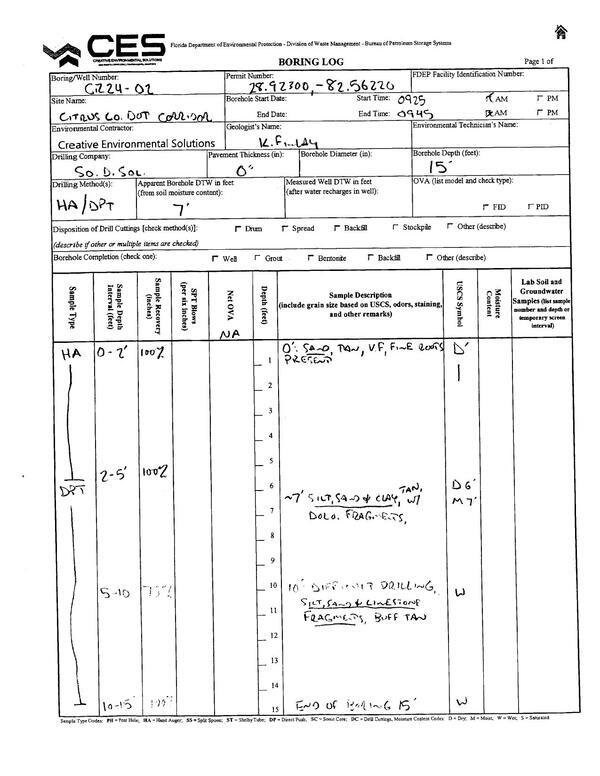 CES
CREATIVE ENVIRONMENTAL SOLUTIONS
Florida Department of Environmental Protection - Division of Waste Management - Bureau of Petroleum Storage Systems
BORING LOG
Page 1 of
Boring/Well Number:
Permit Number:
FDEP Facility Identification Number:
28.92300, -82.56220
Site Name:
Borehole Start Date:
Start Time: 0925
AM
PM
CITRUS CO. DOT CORRIDOR
End Date:
End Time: 0945
AM
PM
Environmental Contractor:
Geologist's Name:
Environmental Technician's Name:
Creative Environmental Solutions
K. FINLAY
Drilling Company:
Pavement Thickness (in):
Borehole Diameter (in):
Borehole Depth (feet):
SO. D. SOL.
0"
15'
Drilling Method(s):
Apparent Borehole DTW in feet
(from soil moisture content):
Measured Well DTW in feet
(after water recharges in well):
OVA (list model and check type):
HA/DPT
7'
FID
PID
Disposition of Drill Cuttings [check method(s)]:
Drum
Spread
Backfill
Stockpile
Other (describe)
(describe if other or multiple items are checked)
Borehole Completion (check one):
Well
Grout
Bentonite
Backfill
Other (describe)
Sample Type
Sample Depth Interval (feet)
Sample Recovery (inches)
SPT Blows (per six inches)
Net OVA
NA
Depth (feet)
Sample Description
(include grain size based on USCS, odors, staining,
and other remarks)
USCS Symbol
Moisture Content
Lab Soil and
Groundwater
Samples (list sample
number and depth or
temporary screen
interval)
HA
0-2'
100%
0': SAND, TAN, V.F, FINE ROOTS
D'
1
PRESENT
2
3
4
5
2-5'
100%
DPT
6
~7' SILT, SAND & CLAY, TAN, W/
D 6'
M 7'
7
DOLO. FRAGMENTS,
8
9
10
5-10
75%
10' DIFFICULT DRILLING,
W
SILT, SAND & LIMESTONE
11
FRAGMENTS, BUFF TAN
12
13
14
10-15'
100%
15
END OF BORING 15'
W
Sample Type Codes: PH = Post Hole; HA = Hand Auger; SS = Split Spoon; ST = Shelby Tube; DP = Direct Push; SC = Sonic Core; DC = Drill Cuttings, Moisture Content Codes: D = Dry; M = Moist; W = Wet; S = Saturated